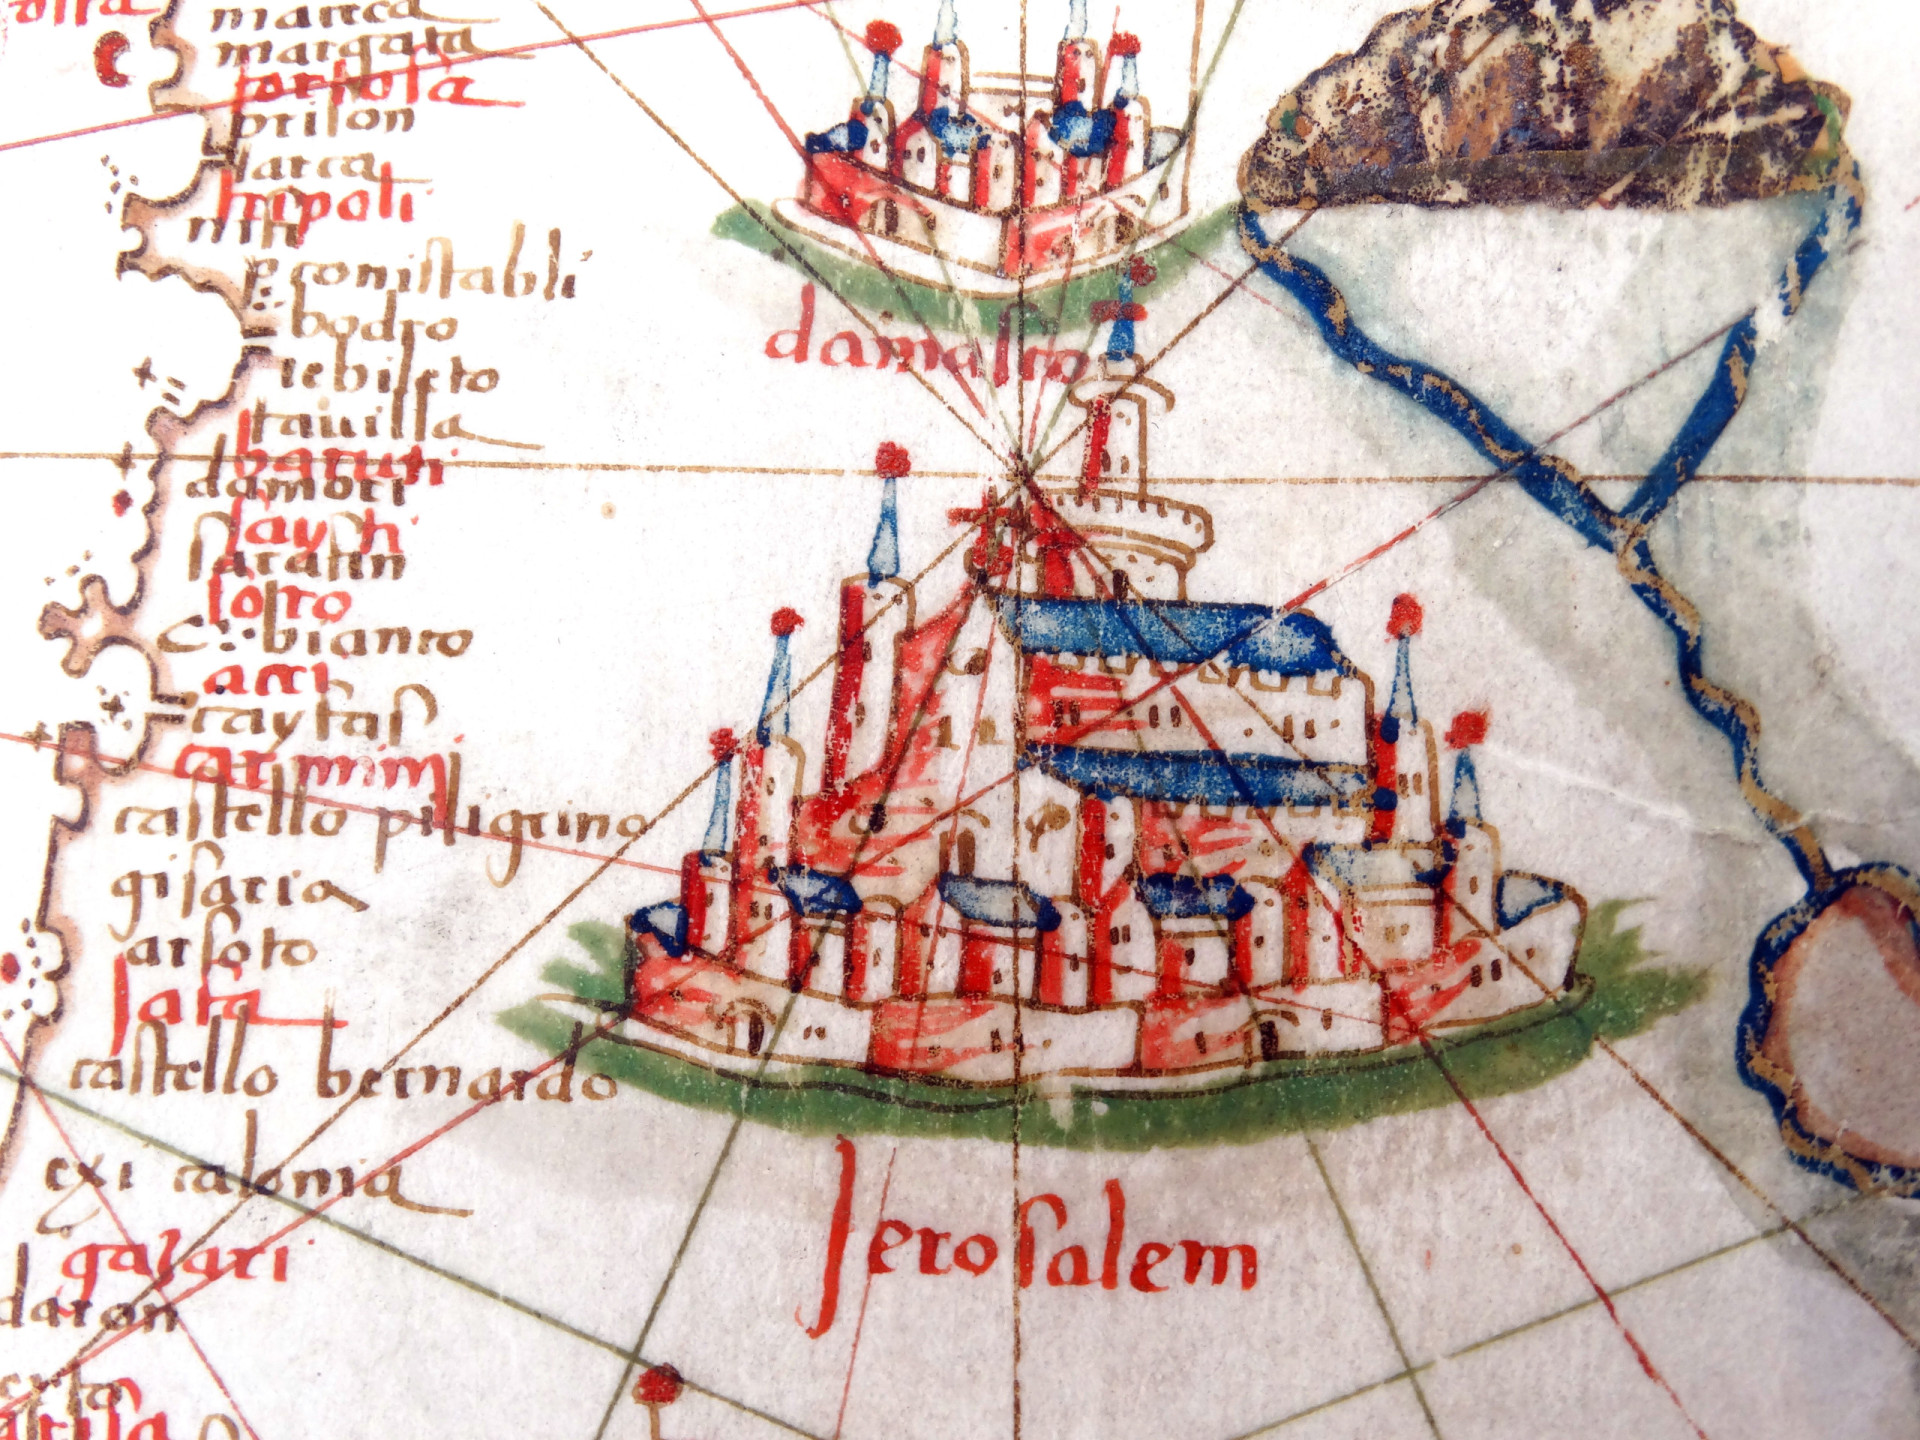 marca
margata
tortosa
prison
larca
tripoli
nifi
p: conistabli
bodro
zebileto
tavilla
baruti
damori
sayti
sarafin
sosro
c: bianco
acri
cayfas
carmini
castello piligrino
gisaria
arsoto
jafa
castello bernardo
exi calonia
gazari
daron
damasco
Jerosalem